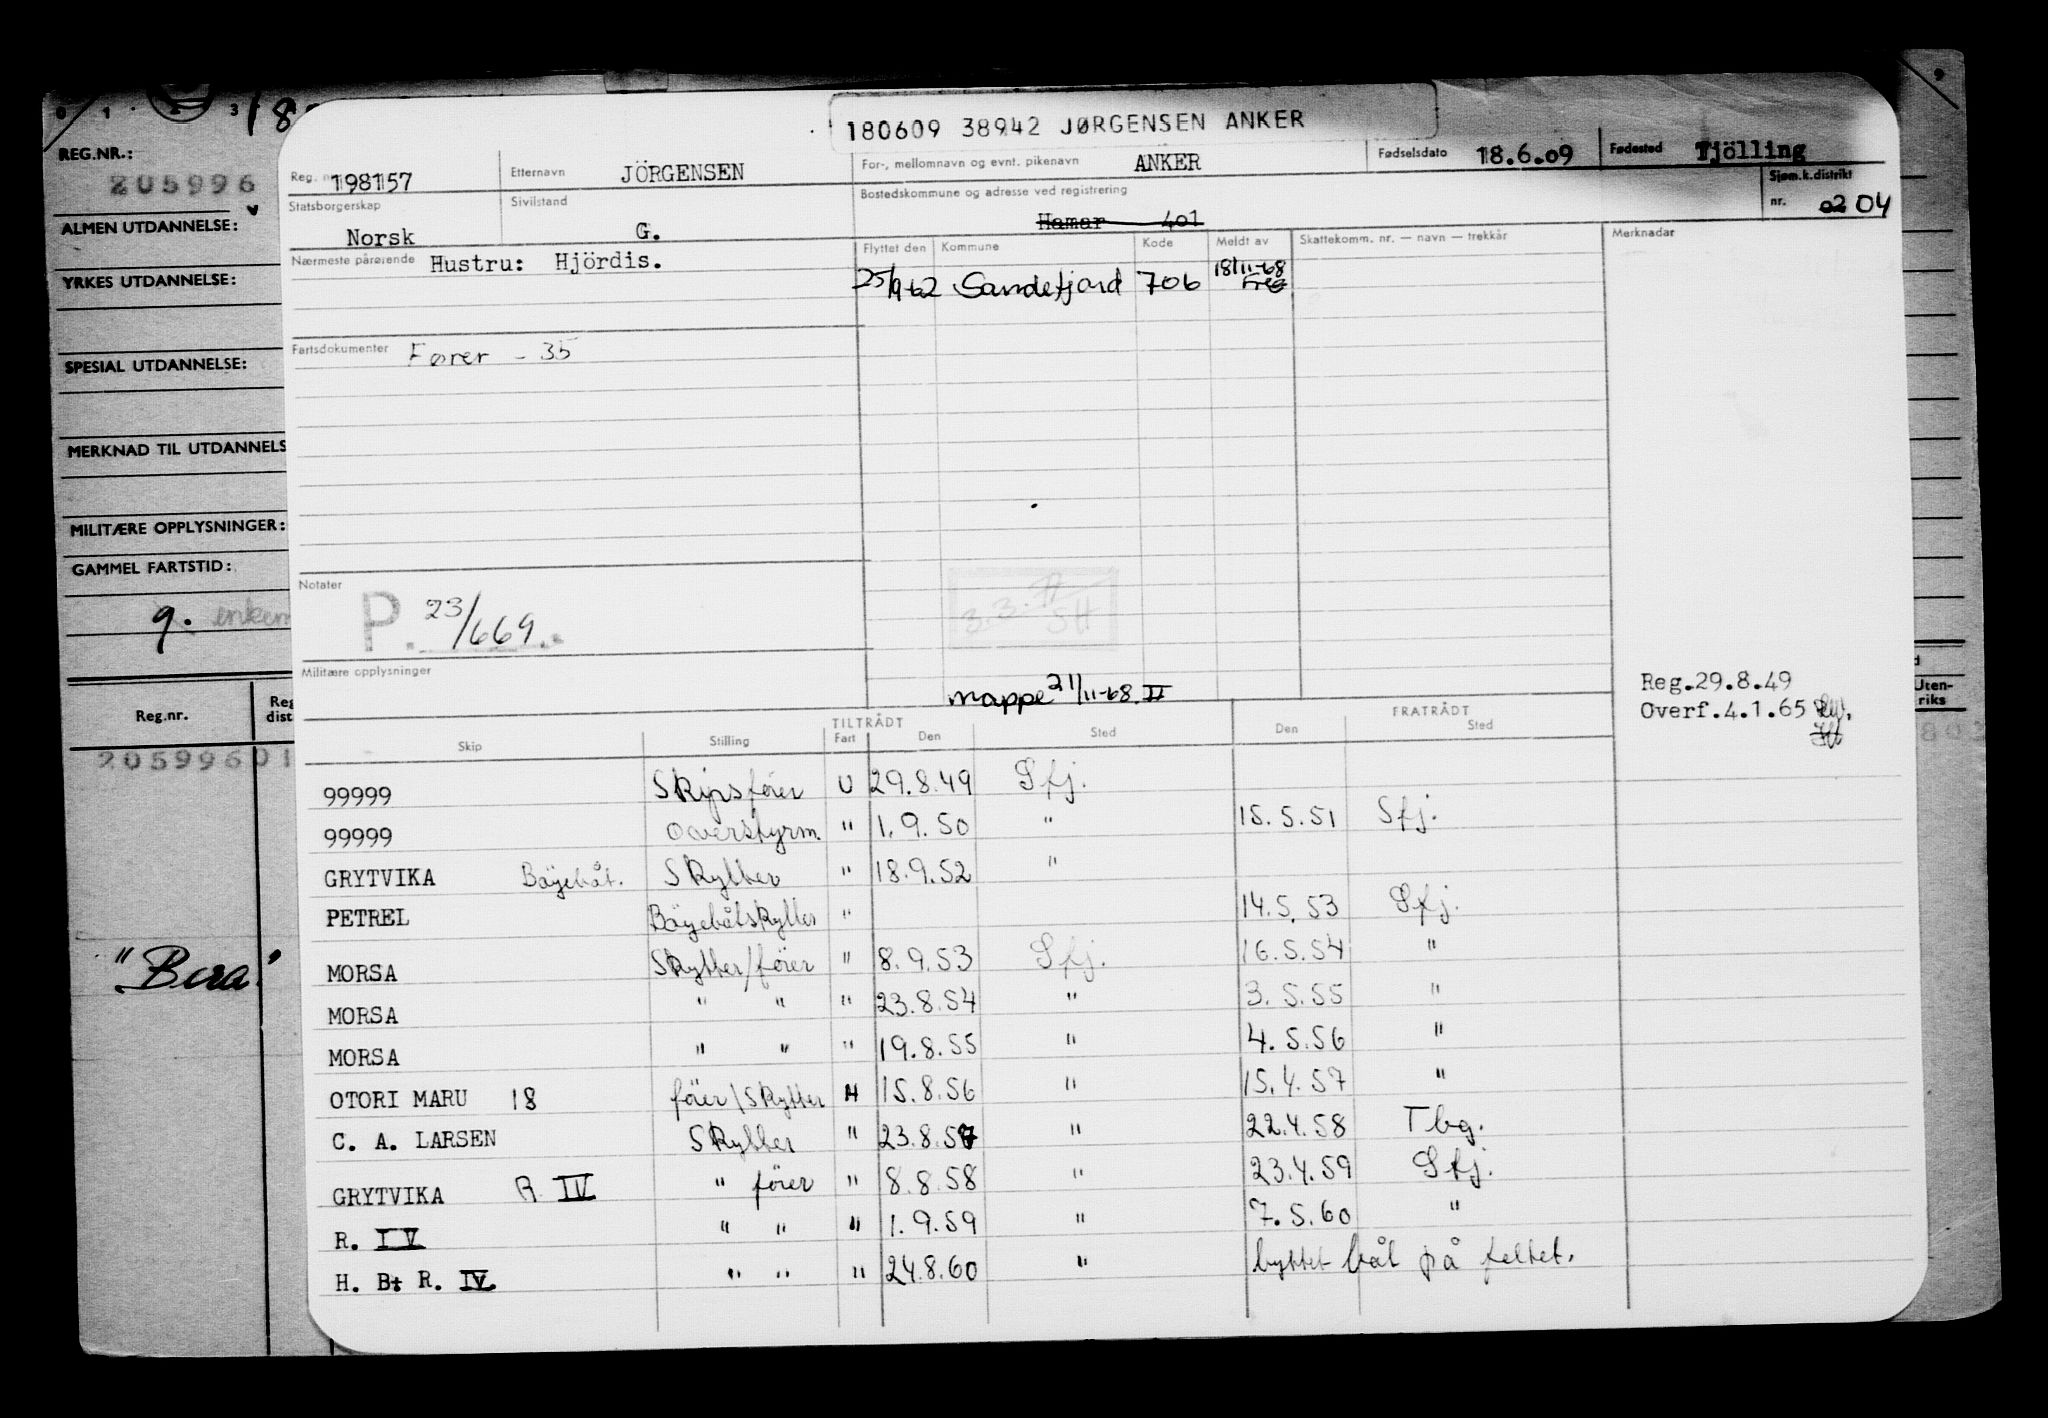 180609 38942 JØRGENSEN ANKER
Reg. nr. 198157 Etternavn JÖRGENSEN For-, mellomnavn og evnt. pikenavn ANKER Fødselsdato 18.6.09 Fødested Tjölling
Statsborgerskap Norsk Sivilstand G. Bostedskommune og adresse ved registrering Hamar 401 Sjøm.k.distrikt nr. 02 04
Nærmeste pårørende Hustru: Hjördis.
Flyttet den Kommune Kode Meldt av Skattekomm. nr. — navn — trekkår Merknader
25/9-62 Sandefjord 706 18/11-68
Fartsdokumenter Fører - 35
Notater
P. 23/669.
3.3.77
SH
Militære opplysninger
mappe 21/11-68 II
Reg.29.8.49
Overf.4.1.65
TILTRÅDT FRATRÅDT
Skip Stilling Fart Den Sted Den Sted
99999 Skipsförer U 29.8.49 Sfj.
99999 Overstyrm. " 1.9.50 " 15.5.51 Sfj.
GRYTVIKA Böyebåt. Skytter " 18.9.52 "
PETREL Böyebåtskytter " 14.5.53 Sfj.
MORSA Skytter/förer " 8.9.53 Sfj. 16.5.54 "
MORSA " " " 23.8.54 " 3.5.55 "
MORSA " " " 19.8.55 " 4.5.56 "
OTORI MARU 18 förer/Skytter H 15.8.56 " 15.4.57 "
C. A. LARSEN Skytter " 23.8.57 " 22.4.58 Tbg.
GRYTVIKA R IV " förer " 8.8.58 " 23.4.59 Sfj.
R. IV " " " 1.9.59 " 7.5.60 "
H. Bt R. IV. " " " 24.8.60 " byttet båt på feltet.
0 1 2 3
REG.NR.:
205996
ALMEN UTDANNELSE:
YRKES UTDANNELSE:
SPESIAL UTDANNELSE:
MERKNAD TIL UTDANNELS
MILITÆRE OPPLYSNINGER:
GAMMEL FARTSTID:
9.
Reg.nr. Reg dist
20599601
"Bera"
9
Uten-
riks